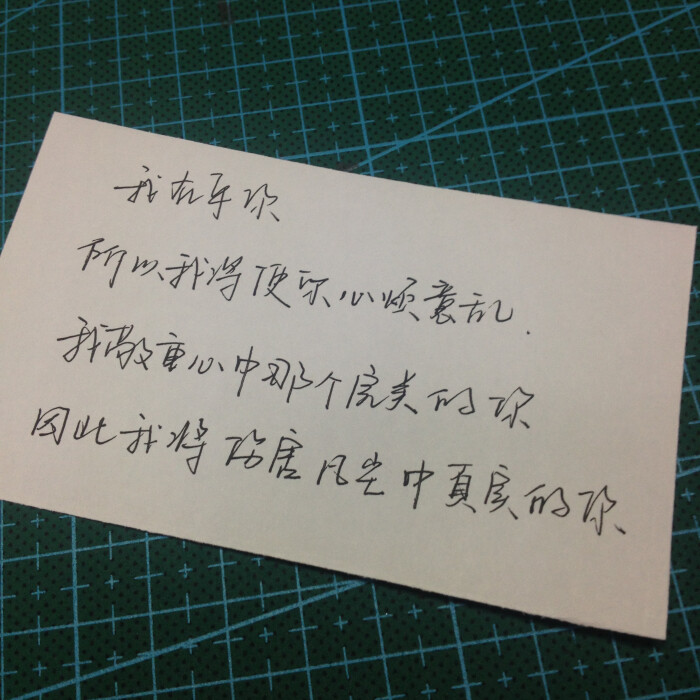 我在乎你
所以我将使你心烦意乱.
我敬重心中那个完美的你
因此我将伤害风尘中真实的你、